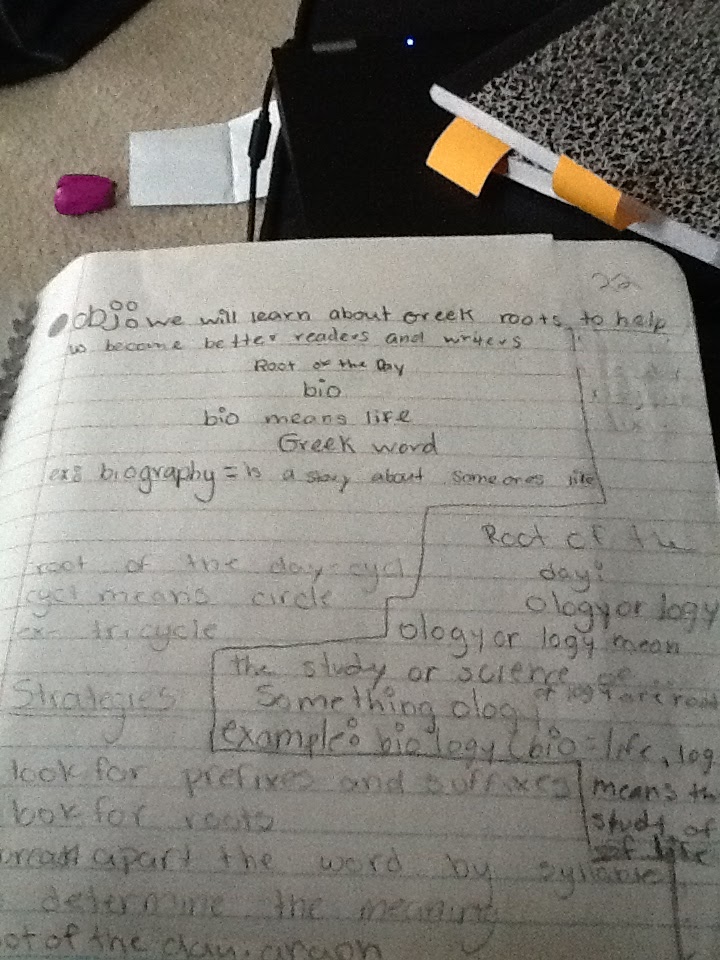 22
obj: we will learn about Greek roots to help
us become better readers and writers
Root of the Day
bio
bio means life
Greek word
ex: biography = is a story about someones life
root of the day-cycl
cycl means circle
ex- tricycle
Root of the
day:
ology or logy
ology or logy mean
the study or science of
something olog
or logy are root
example: biology (bio=life, log
means the
study of
of life
Strategies
look for prefixes and suffixes
look for roots
break apart the word by syllable
determine the meaning
root of the day: graph